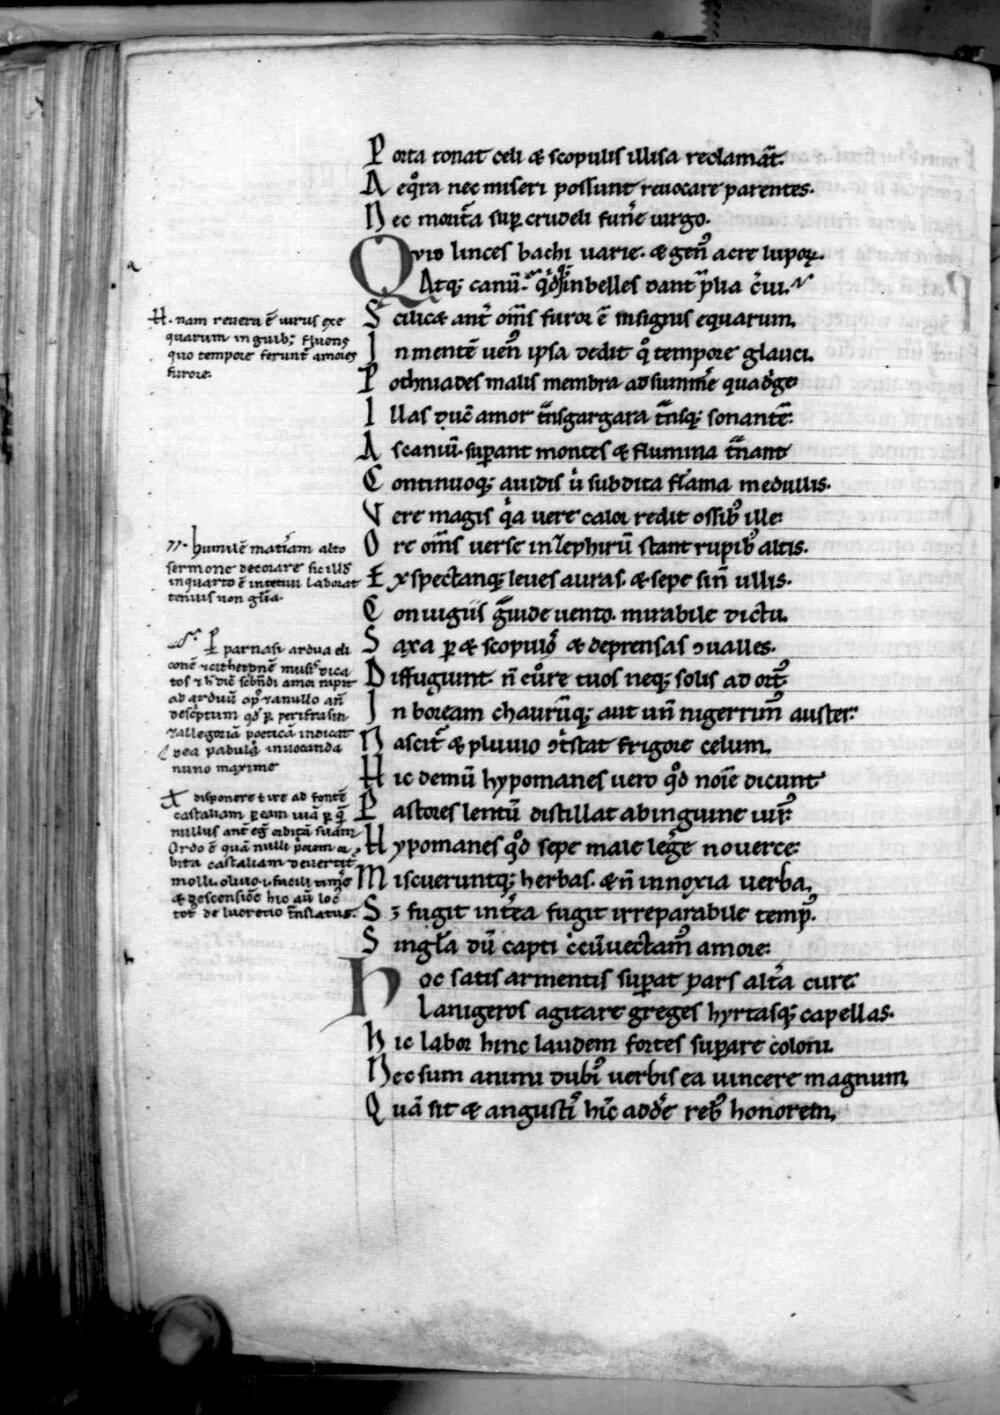 Porta tonat celi & scopulis illisa reclamāt.
Aeq̊ra nec miseri possunt reuocare parentes.
Nec moritᵃ sup̱ crudeli funˀe uirgo.
Quid linces bachi uarie. & genꝰ acre lupoꝝ.
Atq; canū. q̇d īnbelles dant p̄lia cˀui.
Scilicæ antˀ om̄s furor ē insignis equarum.
In mentē uenꝰ ipsa dedit q̊ tempore glauci.
Potniades malis membra adsumm̄e quadˀge
Illas ducˉ amor tᵃnsgargara tᵃnsq; sonantē.
Ascaniū. sup̱ant montes & flumina tᵃnant
Continuoq; auidis ů subdita flāma medullis.
Vere magis q̇a uere calor redit ossib; ille
Ore om̄s uerse inzephirū stant rupib; altis.
Exspectanq; leues auras. & sepe sinˉ ullis.
Coniugiis gᵃuide uento. mirabile dictu.
Saxa p̱ & scopulos & depressas ɔualles.
Diffugiunt n̄ eůre tuos neq; solis ad ortꝰ
In boream chaurūq; aut un̄ nigerrimꝰ auster
Nascitˀ & pluuio ɔtˀstat frigore celum.
Hic demū hypomanes uero q̊d noīe dicunt
Pastores lentū distillat abinguine uirꝰ
Hypomanes q̊d sepe male legˀe nouerce
Miscueruntq; herbas. & n̄ innoxia uerba.
Sꝫ fugit intˀea fugit irreparabile tempꝰ.
Singla dū capti cˀcūuectamꝰ amore
Hoc satis armentis sup̱at pars altˀa cure
Lanigeros agitare greges hyrtasq; capellas.
Hic labor hinc laudem fortes sup̱are coloni.
Nec sum animi dubiꝰ uerbis ea uincere magnum
Quā sit & angustiˀ hūc addˀe reb; honorem.
nam reuera ē uirus exe
quarum inguib; fluens
quo tempore ferunt amores
furore.
humilē matˀiam alto
sermone decorare sic illd
inquarto ē intenui laborat
tenuis non glīa.
parnasi ardua eli
conē & citheronē musis dica
ad arduū
desc̄ptum q̊d p̱ perifrasin
& allegoriā poeticā indicat
dea pabula inuocanda
nunc maxime
disponere & ire ad fontē
castaliam p̱ eam uiā p̱ q̄
nullus antˀ egˉ orbitā suam
Ordo ē quā nulli p̄orem or
bita castaliam deuertitˀ
molli. cliuo. i. facili
& descensiōe hic aū loc̉
totꝰ de lucretio tᵃnslatus.